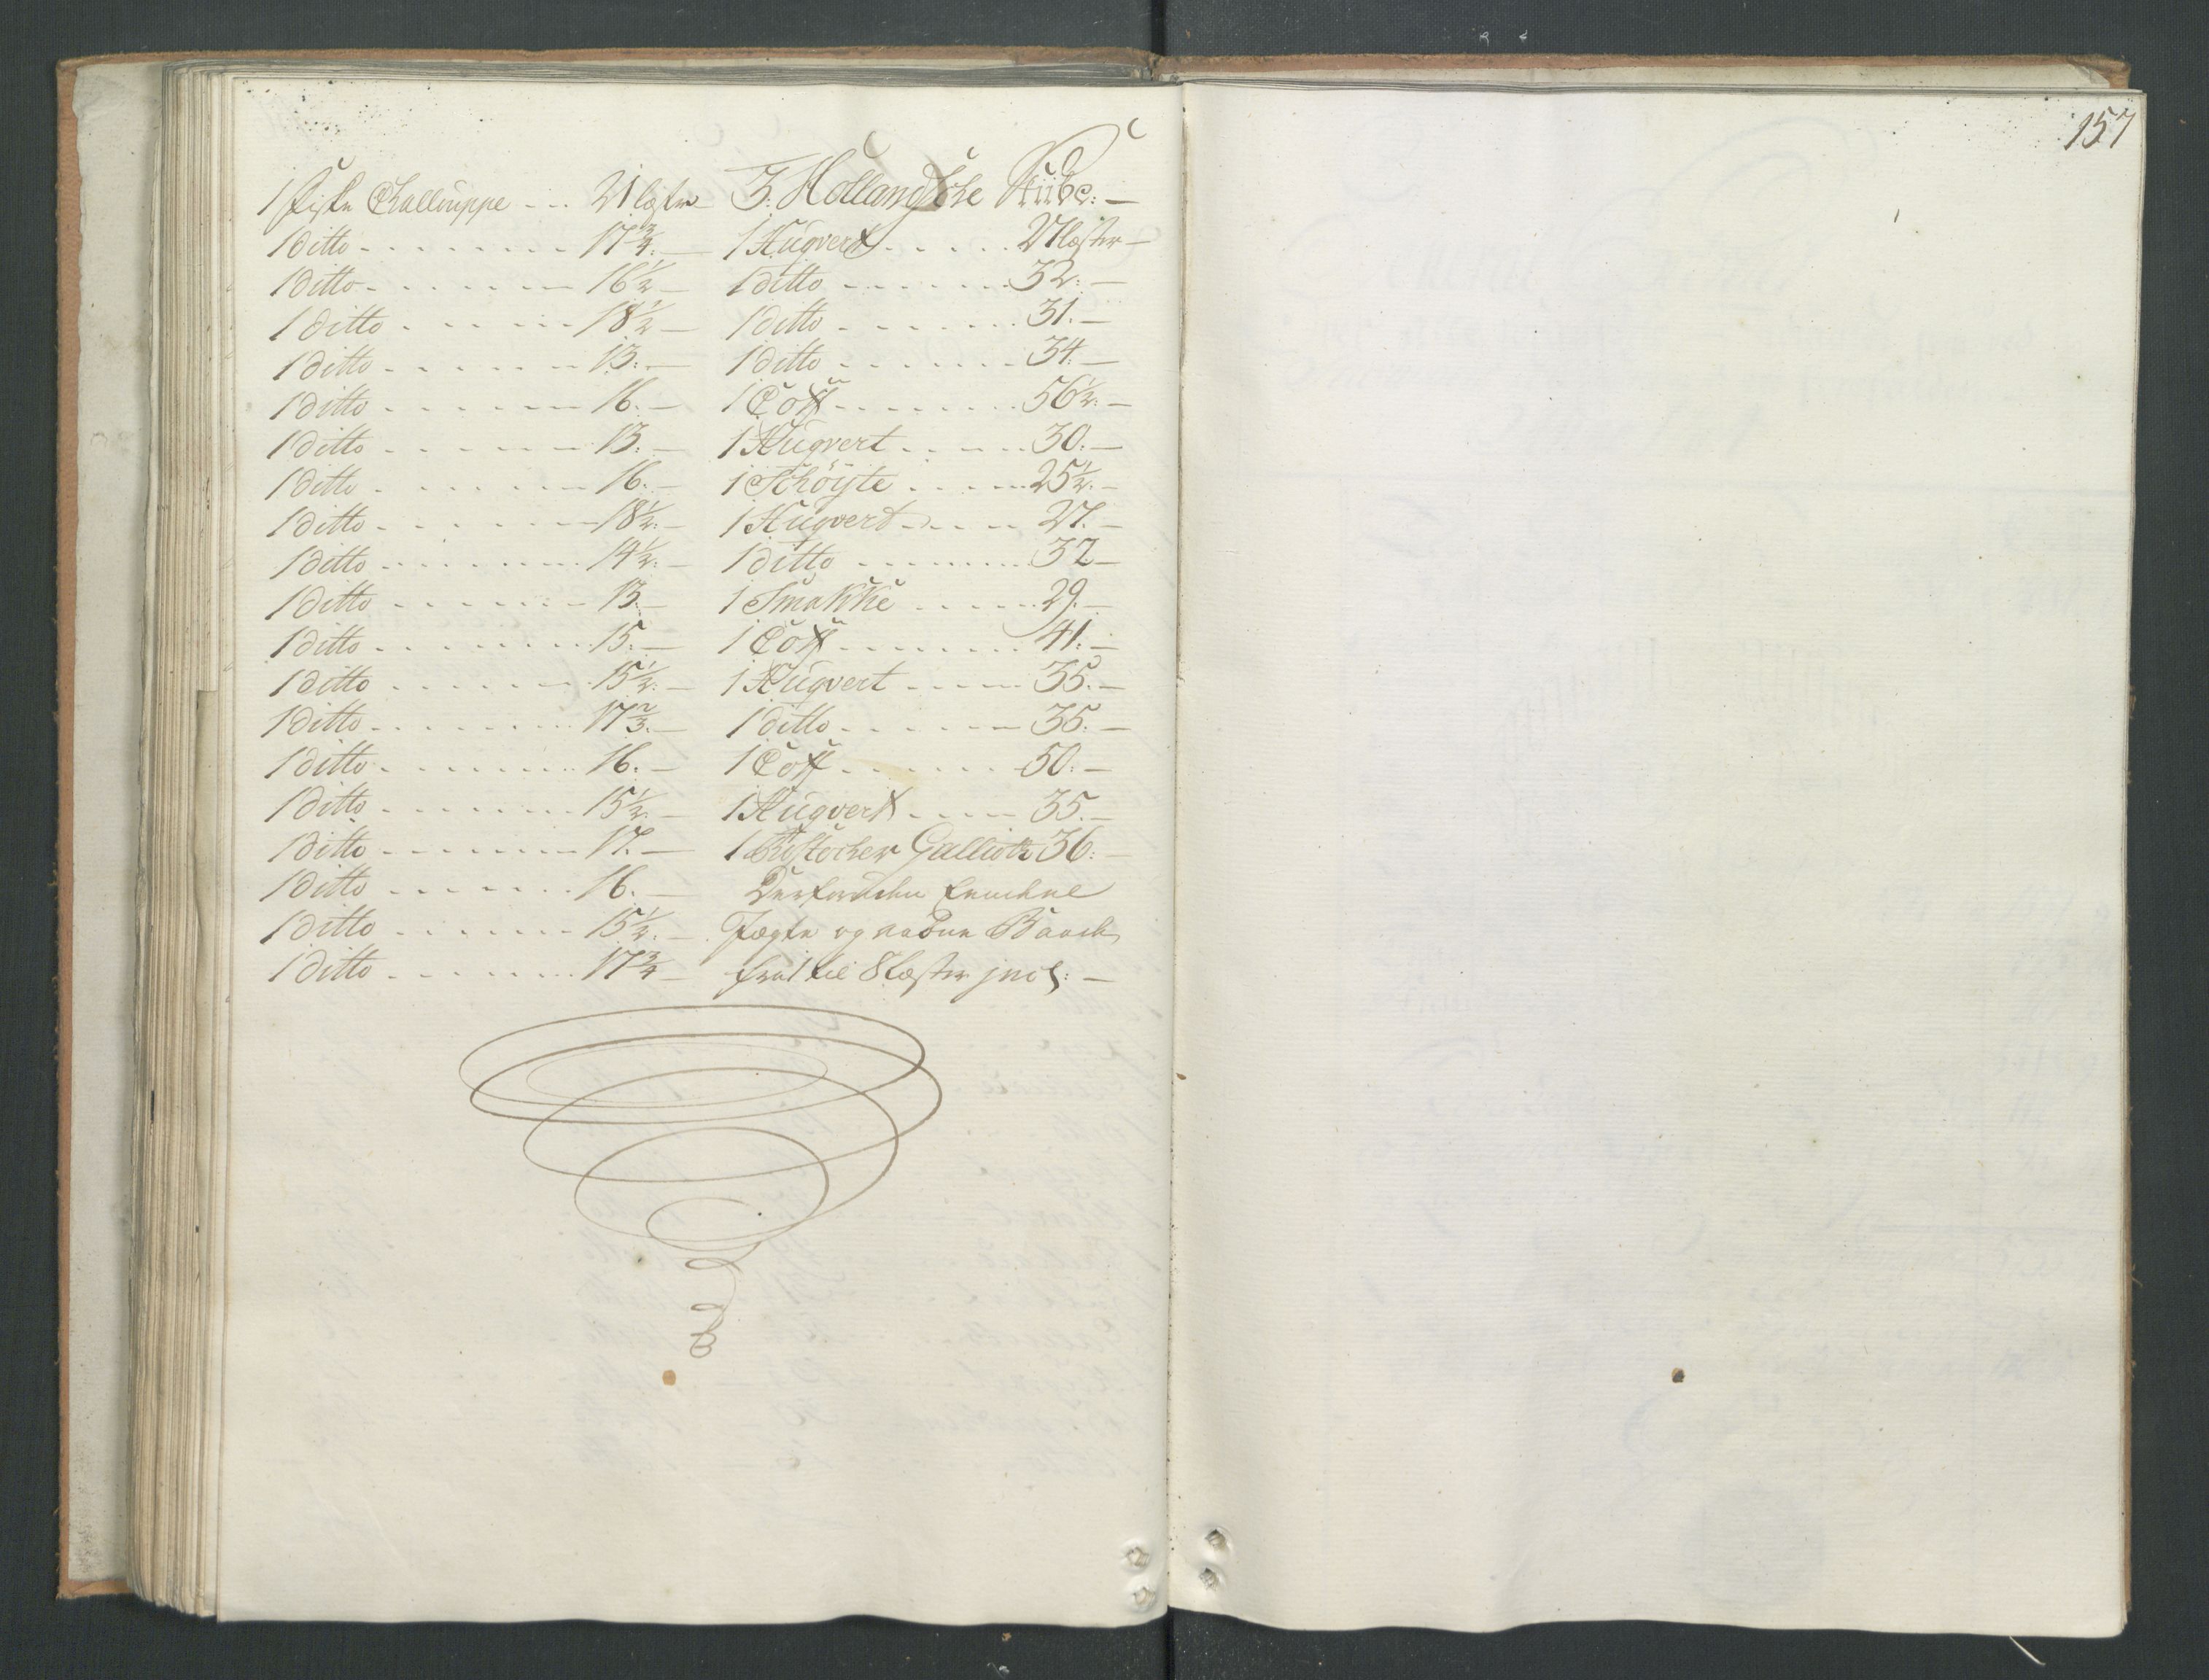 157
1 fiske Challouppe - - - 21 læster
1 ditto - - - - - - 17 3/4. —
1 ditto - - - - - - 16 1/2 —
1 ditto - - - - - - 18 1/2 —
1 ditto - - - - - - 13. —
1 ditto - - - - - - 16. —
1 ditto - - - - - - 13. —
1 ditto - - - - - - 16. —
1 ditto - - - - - - 18 1/2. —
1 ditto - - - - - - 14 1/2. —
1 ditto - - - - - - 13. —
1 ditto - - - - - - 15. —
1 ditto - - - - - - 15 1/2. —
1 ditto - - - - - - 17 2/3. —
1 ditto - - - - - - 16. —
1 ditto - - - - - - 15 1/2. —
1 ditto - - - - - - 17. —
1 ditto - - - - - - 16. —
1 ditto - - - - - - 15 1/2. —
1 ditto - - - - - - 17 3/4 —
3. Hollandske Skibe: —
1 Huqvert - - - - - 27 læster —
1 ditto - - - - - - 32. —
1 ditto - - - - - - 31. —
1 ditto - - - - - - 34. —
1 Coff - - - - - - 56 1/2. —
1 Huqvert - - - - - 30. —
1 Schöÿte - - - - - 25 1/2. —
1 Huqvert - - - - 27. —
1 ditto - - - - - - 37 —
1 Smakke - - - - - 29. —
1 Coff - - - - - - 41. —
1 Huqvert - - - - 35. —
1 ditto - - - - - - 35. —
1 Coff - - - - - - 50. —
1 Huqvert - - - - 35. —
1 Gallioth 36. —
Jægte og aabne Baade
fra 1 til 8 læster incl: —